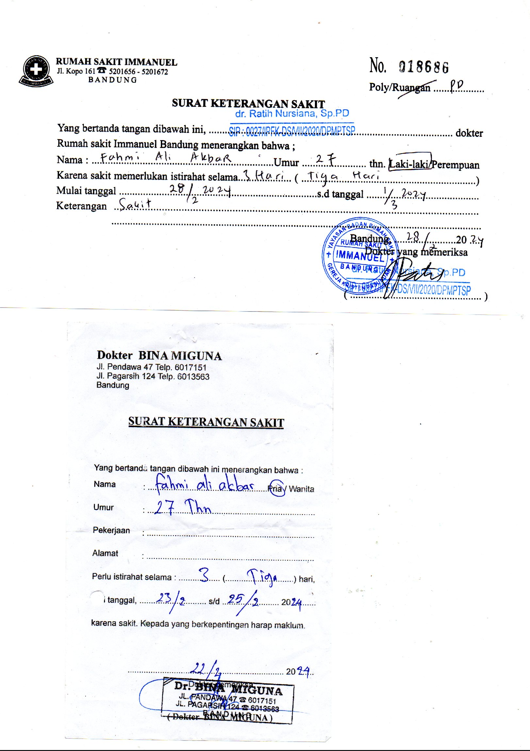 RUMAH SAKIT IMMANUEL
Jl. Kopo 161 ☎ 5201656 - 5201672
BANDUNG
No. 018686
Poly/Ruangan ...... PD ..........
SURAT KETERANGAN SAKIT
dr. Ratih Nursiana, Sp.PD
Yang bertanda tangan dibawah ini, ....... dokter
Rumah sakit Immanuel Bandung menerangkan bahwa ;
Nama : Fahmi Ali Akbar Umur 27 thn. Laki-laki/Perempuan
Karena sakit memerlukan istirahat selama 3 Hari ( Tiga Hari )
Mulai tanggal 28/2 2024 s.d tanggal 1/3 2024
Keterangan Sakit
Bandung, 28/ 2024
Dokter yang memeriksa
RUMAH SAKIT
IMMANUEL
BANDUNG
Sp.PD
DS/VII/2020/DPMPTSP
Dokter BINA MIGUNA
Jl. Pendawa 47 Telp. 6017151
Jl. Pagarsih 124 Telp. 6013563
Bandung
SURAT KETERANGAN SAKIT
Yang bertanda tangan dibawah ini menerangkan bahwa :
Nama : fahmi ali akbar Pria/ Wanita
Umur : 27 Thn
Pekerjaan :
Alamat :
Perlu istirahat selama : 3 ( Tiga ) hari,
tanggal, 23/2 s/d 25/2 2024
karena sakit. Kepada yang berkepentingan harap maklum.
22/2 2024
Dr. BINA MIGUNA
JL. PANDAWA 47 ☎ 6017151
JL. PAGARSIH 124 ☎ 6013563
BANDUNG
(Dokter BINA MIGUNA)